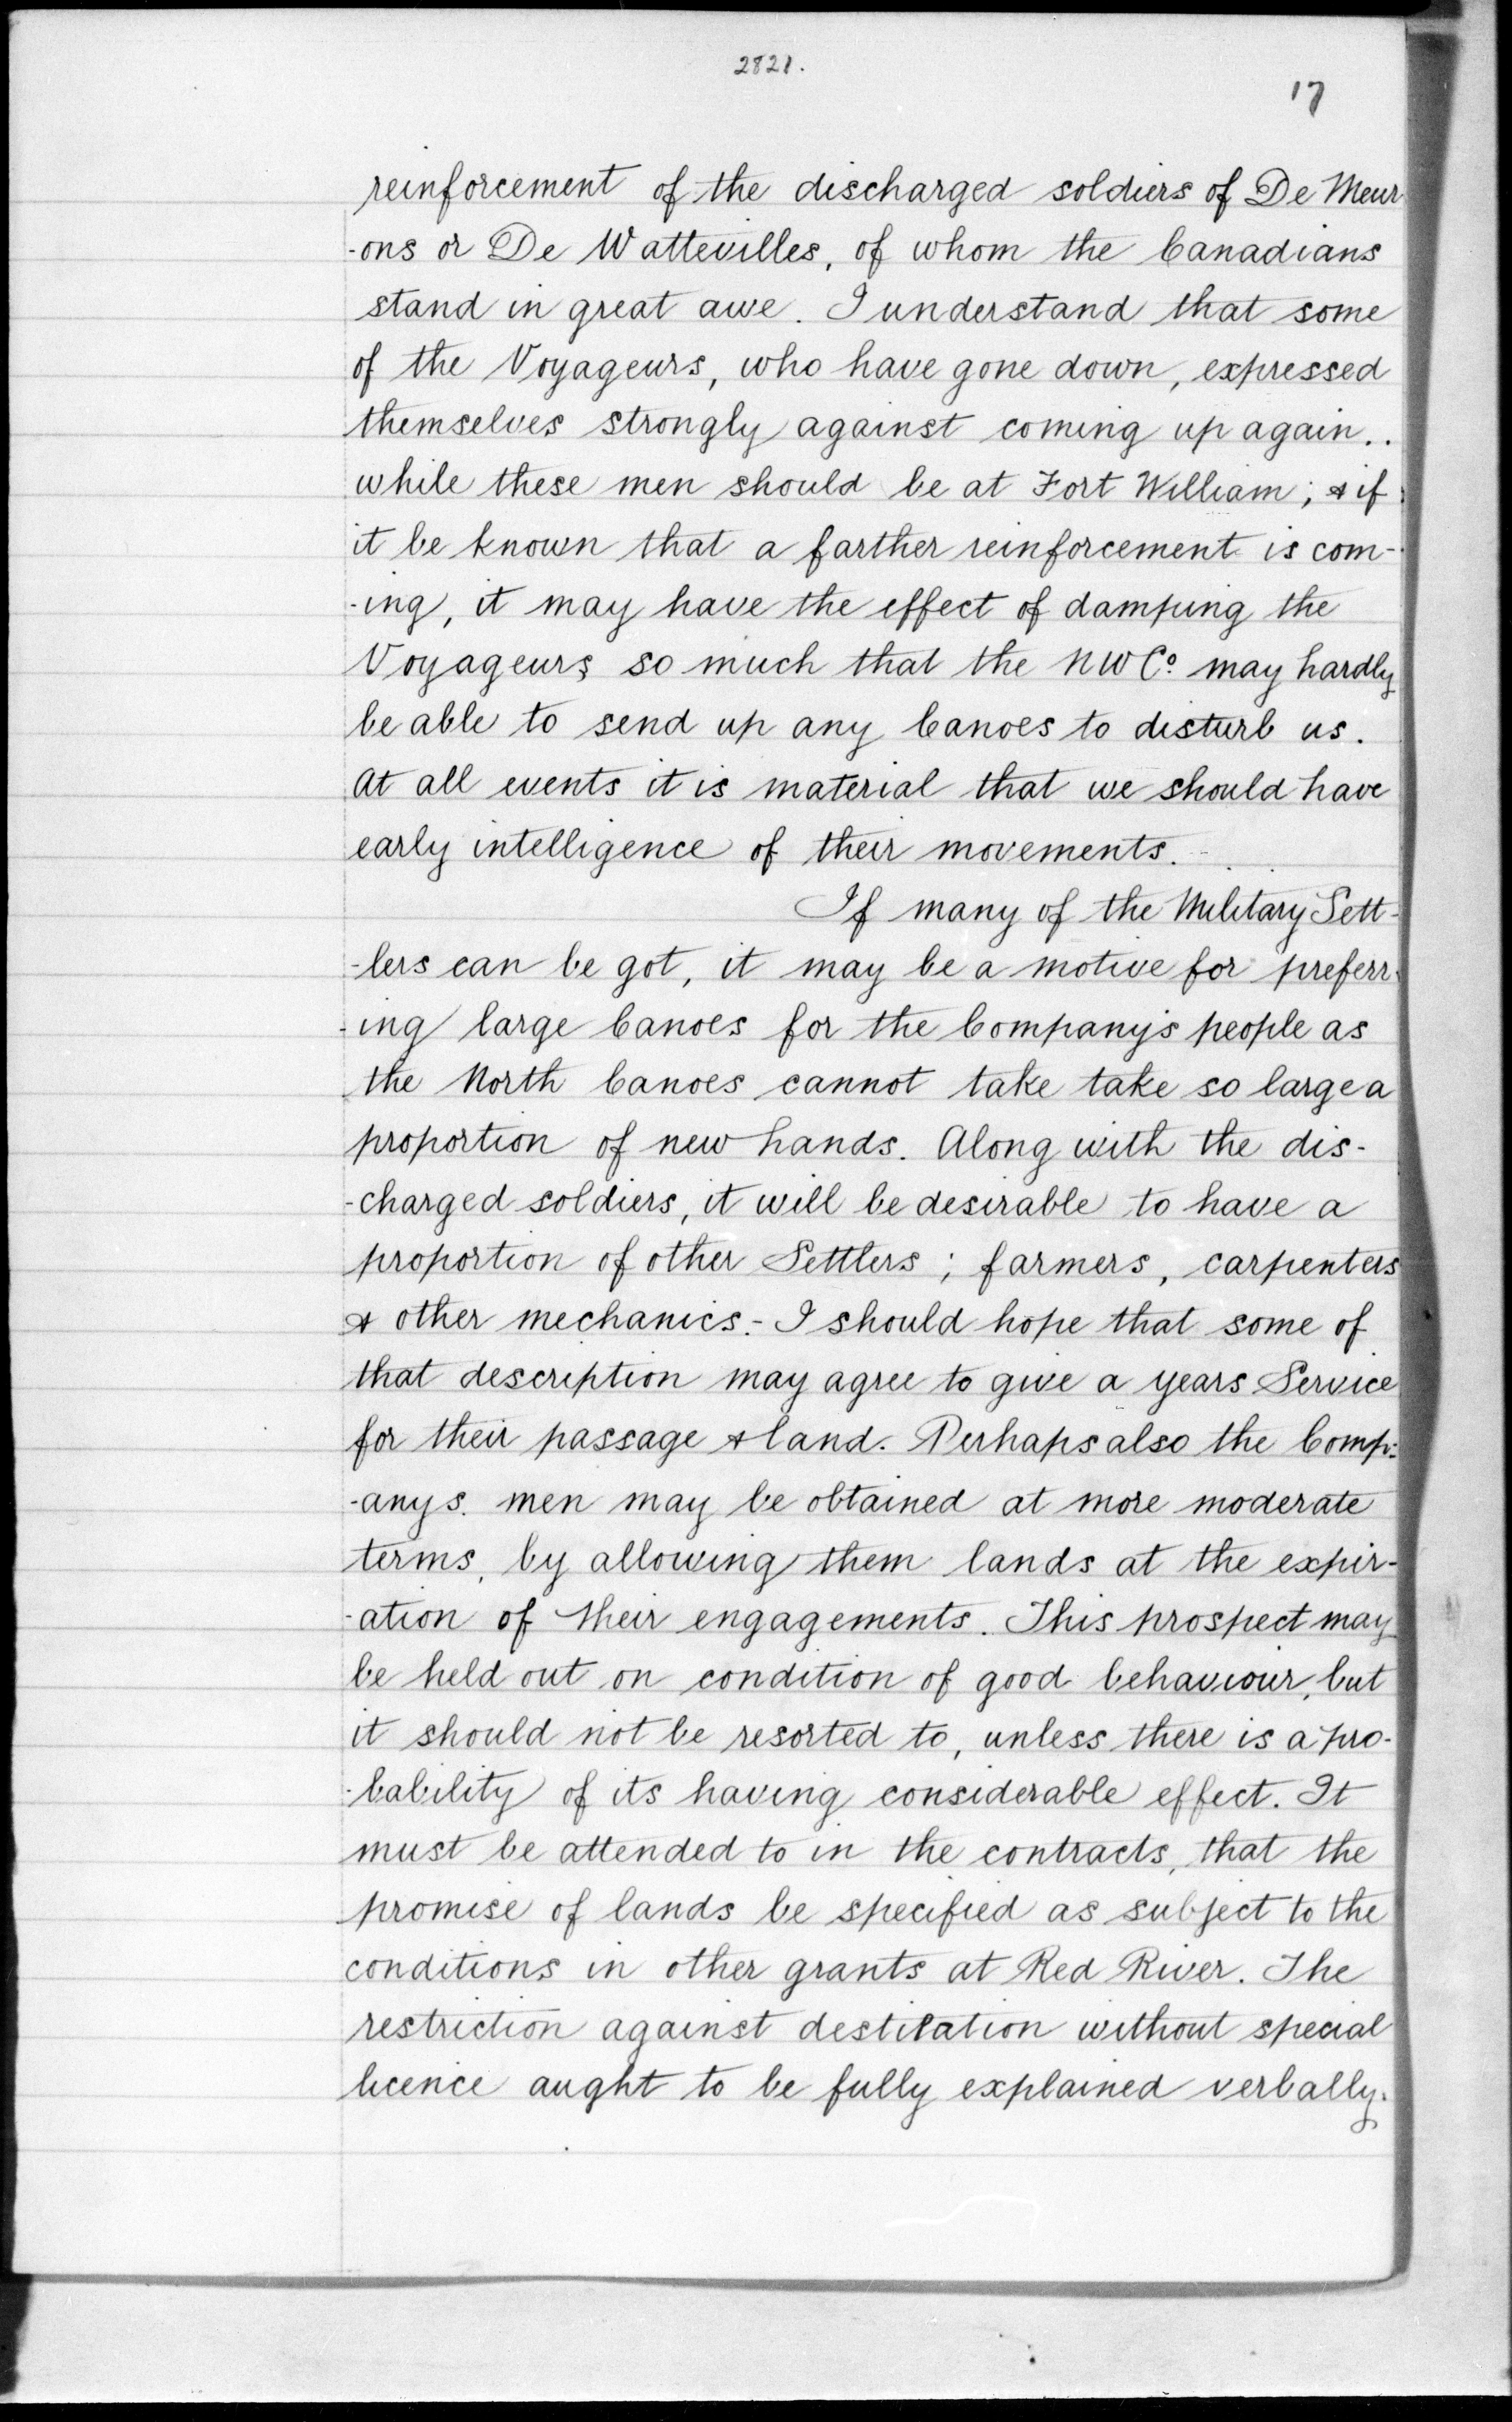 2821.
17
reinforcement of the discharged soldiers of De Meur
-ons or De Wattevilles, of whom the Canadians
stand in great awe. I understand that some
of the Voyageurs, who have gone down, expressed
themselves strongly against coming up again..
while these men should be at Fort William; & if
it be known that a farther reinforcement is com-
-ing, it may have the effect of damping the
Voyageurs so much that the NWCo. may hardly
be able to send up any Canoes to disturb us.
At all events it is material that we should have
early intelligence of their movements.
If many of the Military Sett-
-lers can be got, it may be a motive for preferr-
-ing large Canoes for the Company's people as
the North Canoes cannot take take so large a
proportion of new hands. Along with the dis-
-charged soldiers, it will be desirable to have a
proportion of other Settlers; farmers, carpenters
& other mechanics.- I should hope that some of
that description may agree to give a years Service
for their passage & land. Perhaps also the Comp-
-anys. men may be obtained at more moderate
terms, by allowing them lands at the expir-
-ation of their engagements. This prospect may
be held out on condition of good behaviour, but
it should not be resorted to, unless there is a pro-
-bability of its having considerable effect. It
must be attended to in the contracts, that the
promise of lands be specified as subject to the
conditions in other grants at Red River. The
restriction against destilation without special
licence aught to be fully explained verbally.